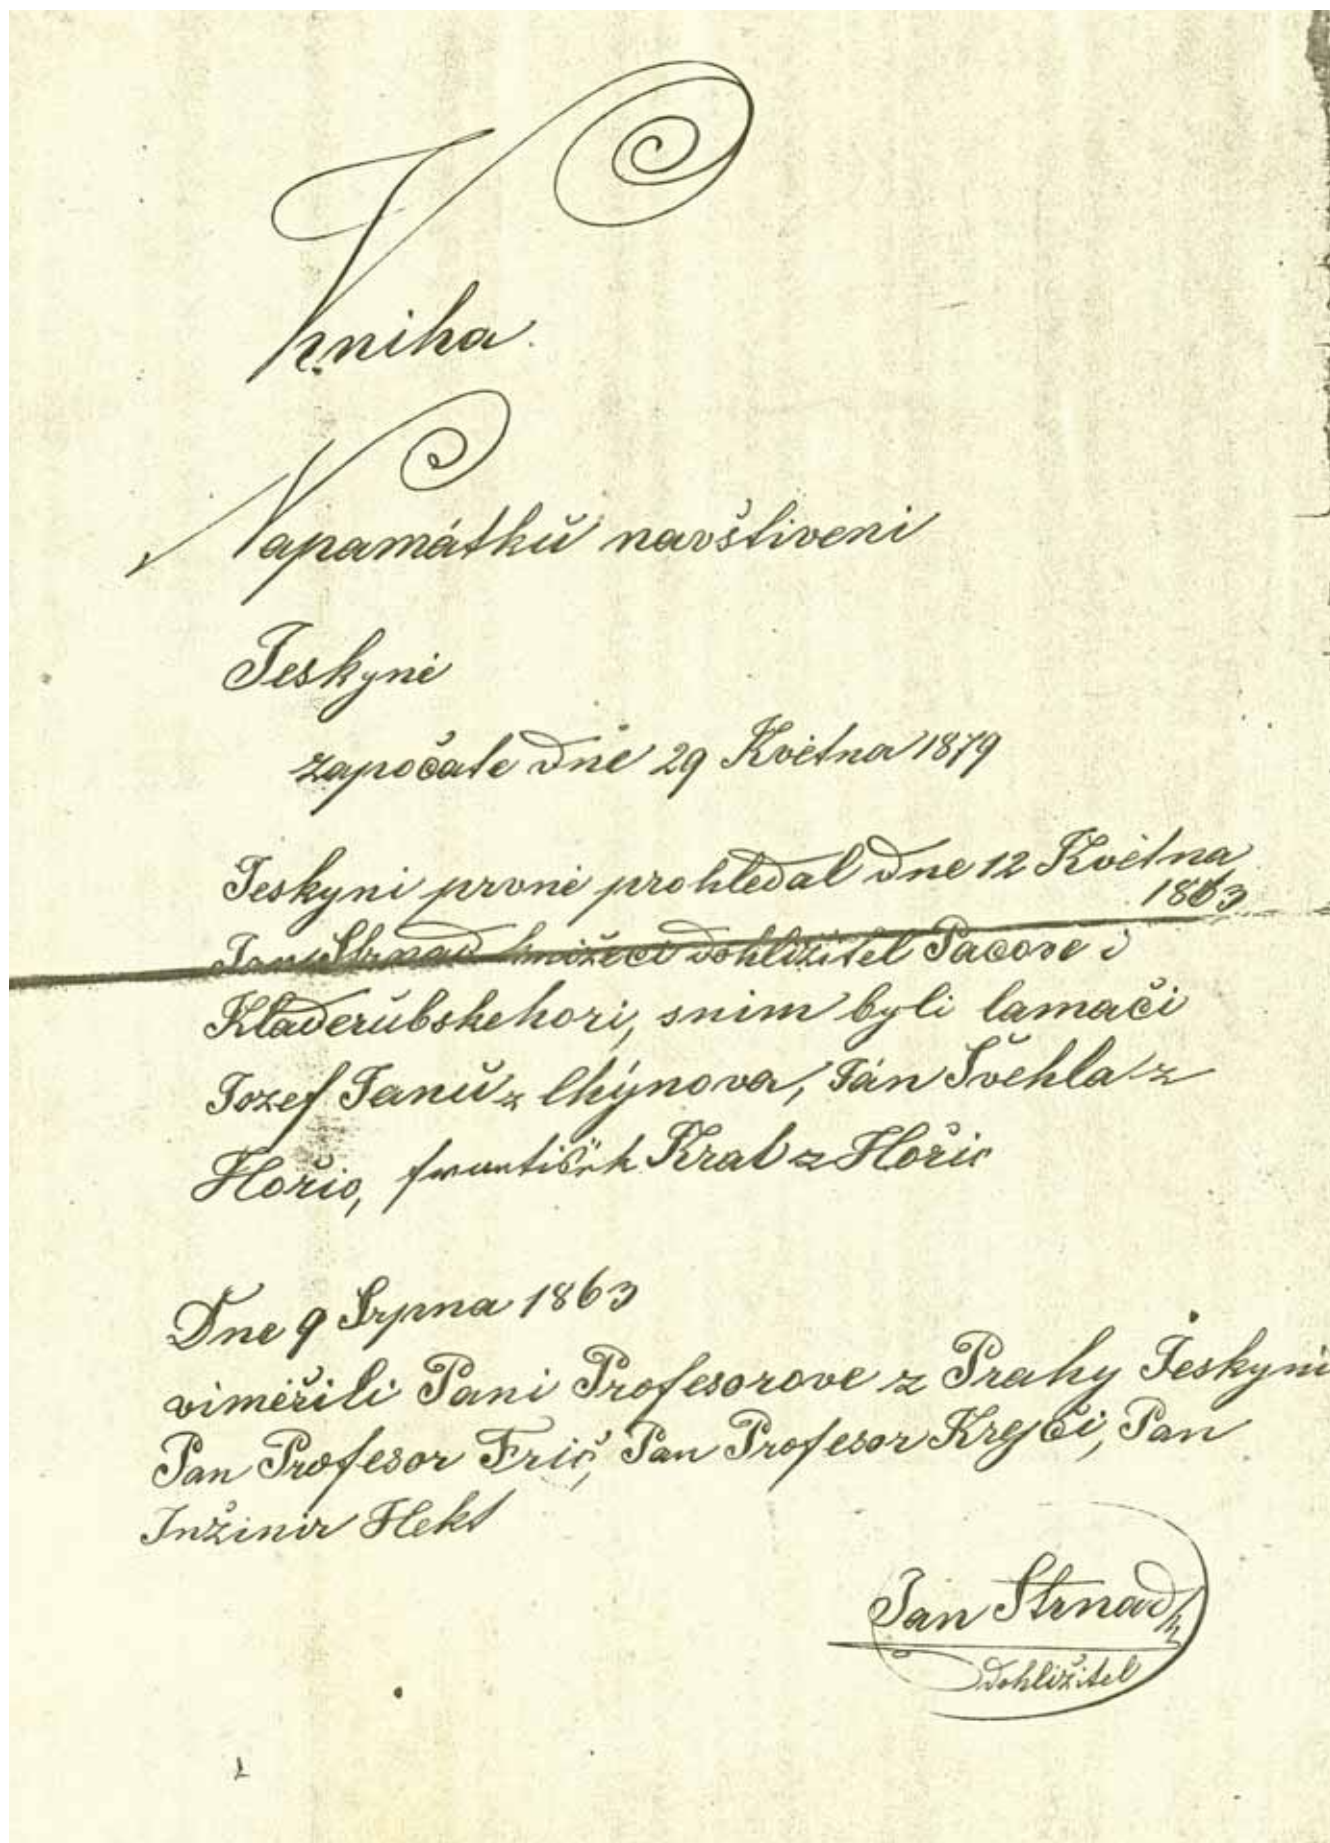 Kniha
Napamátků navštiveni
Jeskyně
započate dně 29 Května 1879
Jeskyni prvně prohledal dne 12 Května
1863
Jan Strnad knižeci dohližitel Pacove i
Kladerůbskehori, snim byli lamači
Jozef Janů z Chýnova, Ján Švehla z
Hořic, františek Kral z Hořic
Dne 9 Srpna 1863
viměřili Pani Profesorove z Prahy Jeskyni
Pan Profesor Frič, Pan Profesor Krejči, Pan
Inžinir Hekt
Jan Strnad
Dohližitel